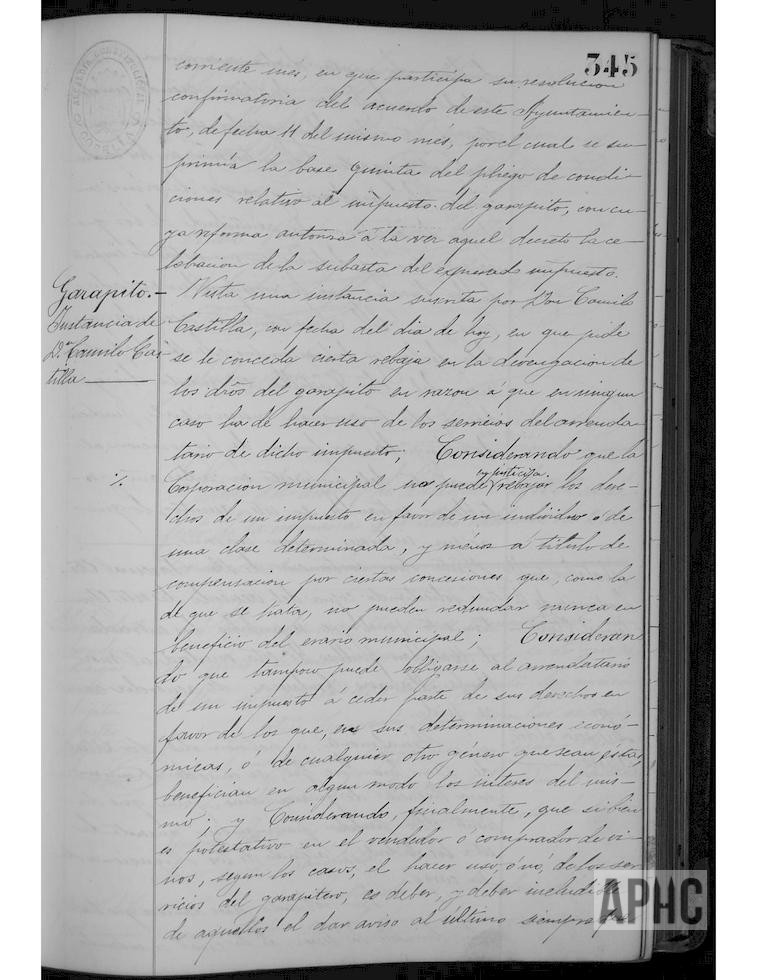 345
corriente mes, en que participa su resolucion
confirmatoria del acuerdo de este Ayuntamien-
to, de fecha 11 del mismo més, por el cual se su-
primía la base quinta del pliego de condi-
ciones relativo al impuesto del garapito, con cu-
ya reforma autoriza á la vez aquel decreto la ce-
lebracion de la subasta del expresado impuesto.
Garapito.-
Instancia de
D.n Camilo Cas-
tilla
Vista una instancia suscrita por Don Camilo
Castilla, con fecha del dia de hoy, en que pide
se le conceda cierta rebaja en la devengacion de
los drõs del garapito en razon á que en ningun
caso ha de hacer uso de los servicios del arrenda-
tario de dicho impuesto; Considerando que la
Corporacion municipal no puede en justicia rebajar los dere-
chos de un impuesto en favor de un individuo ó de
una clase determinada, y ménos a título de
compensacion por ciertas concesiones que, como la
de que se trata, no pueden redundar nunca en
beneficio del erario municipal; Consideran
do que tampoco puede obligarse al arrendatario
de un impuesto á ceder parte de sus derechos en
favor de los que, en sus determinaciones econó-
micas, ó de cualquier otro género que sean estas,
benefician en algun modo los interes del mis-
mo; y Considerando, finalmente, que si bien
es potestativo en el vendedor ó comprador de vi-
nos, segun los casos, el hacer uso, ó nó, de los ser-
vicios del garapitero, es deber, y deber ineludible
de aquellos el dar aviso al último siempre
APHC